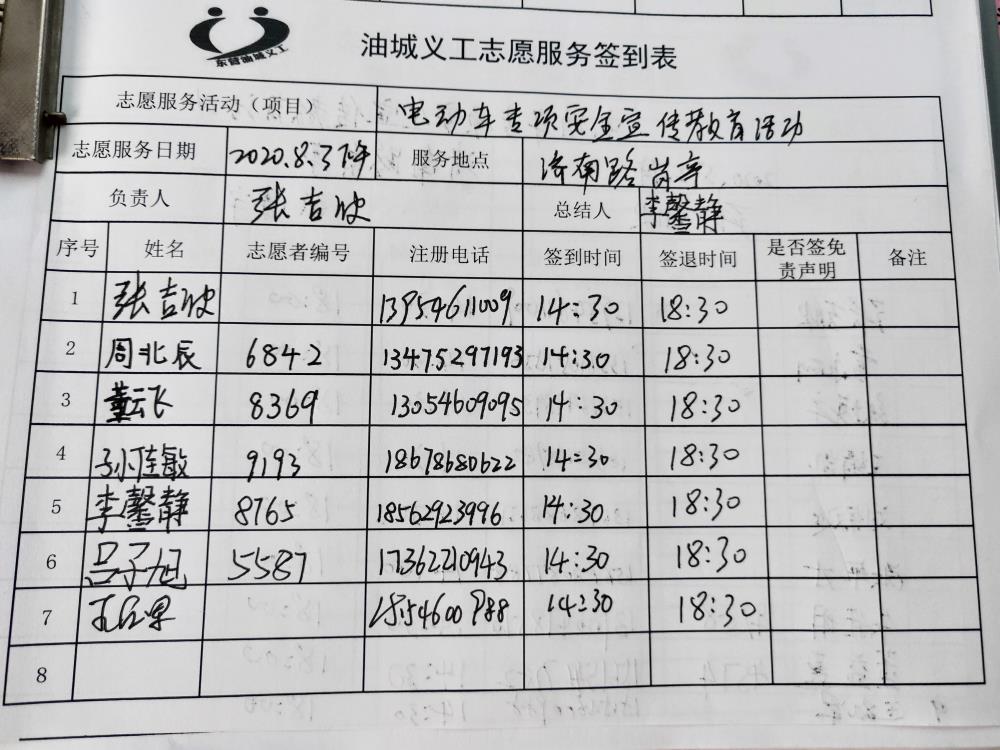 东营油城义工
油城义工志愿服务签到表
志愿服务活动（项目） 电动车专项安全宣传教育活动
志愿服务日期 2020.8.3下午 服务地点 济南路岗亭
负责人 张吉波 总结人 李馨静
序号 姓名 志愿者编号 注册电话 签到时间 签退时间 是否签免责声明 备注
1 张吉波 13954611009 14:30 18:30
2 周北辰 6842 13475297193 14:30 18:30
3 董云飞 8369 13054609095 14:30 18:30
4 孙佳敏 9193 18678680622 14:30 18:30
5 李馨静 8765 18562923996 14:30 18:30
6 吕子旭 5587 17362210943 14:30 18:30
7 14:30 18:30
8